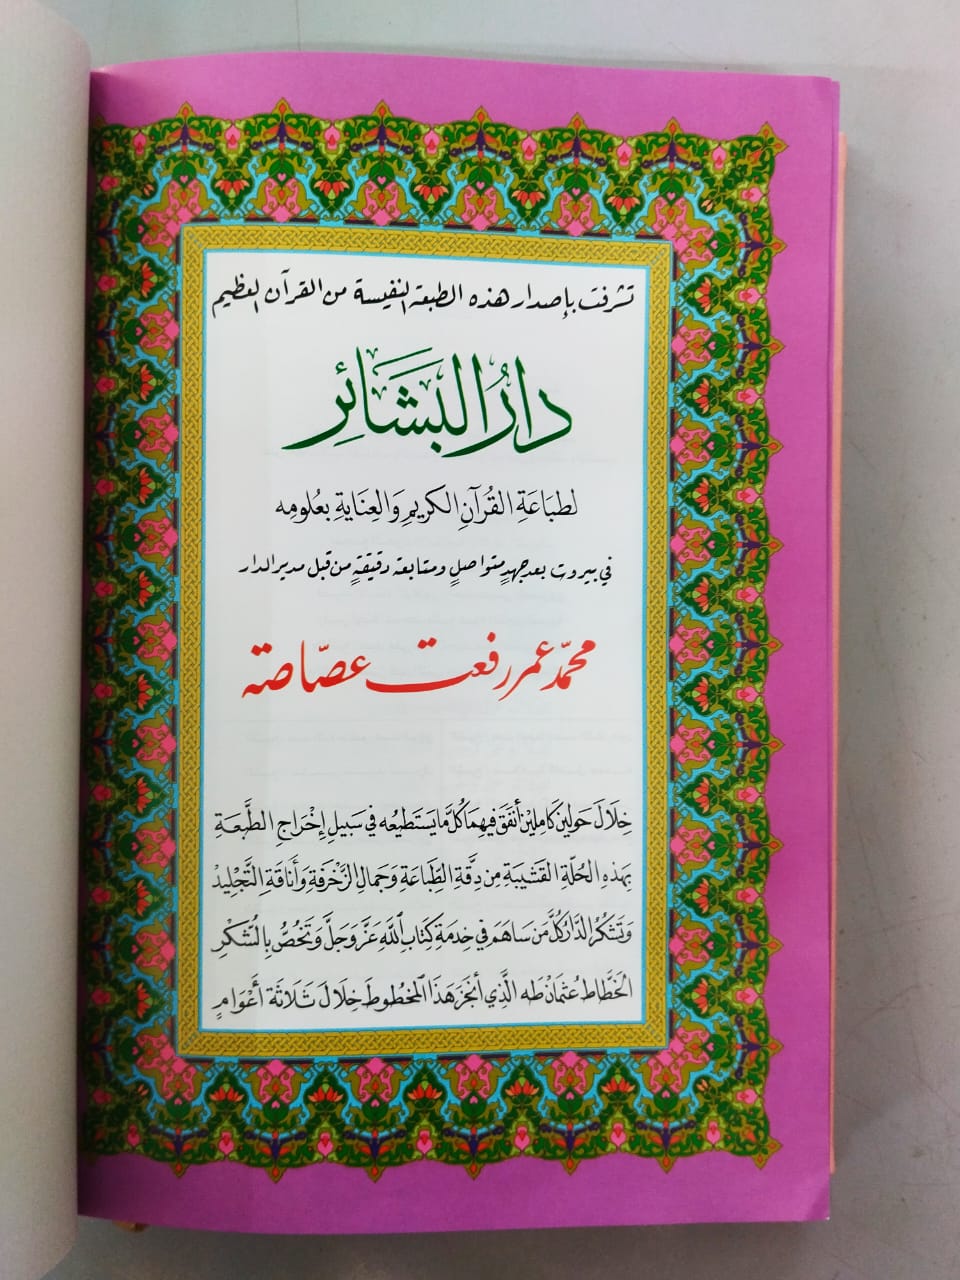 تشرفت بإصدار هذه الطبعة النفيسة من القرآن العظيم
دَارُ البَشَائِرِ
لطبَاعَةِ القُرآنِ الكريمِ وَالعِنَايَةِ بعُلومِه
في بيروت بعد جهدٍ متواصلٍ ومتابعة دقيقةٍ من قبل مدير الدار
محمّد عمر رفعت عصّاصة
خِلَالَ حَولين كَامِلين أنفَقَ فيهِمَا كُلَّ مَا يَستَطيعُه في سَبيلِ إخْرَاجِ الطَّبعَةِ
بِهَذِهِ الحُلَّةِ القَشيبَة مِن دِقَّةِ الطِّبَاعَةِ وَجَمالِ الزَّخْرَفَةِ وَأنَاقَةِ التَّجْلِيد
وَتَشكُرُ الدَّارُ كُلَّ مَن سَاهَمَ في خِدمَةِ كِتَابِ اللَّهِ عَزَّ وَجَلَّ وَتَخُصُّ بِالشُّكْرِ
الخَطَّاط عُثمَانْ طَه الَّذي أنجَزَ هَذَا المَخْطُوطَ خِلَالَ ثَلَاثَة أعْوَامٍ